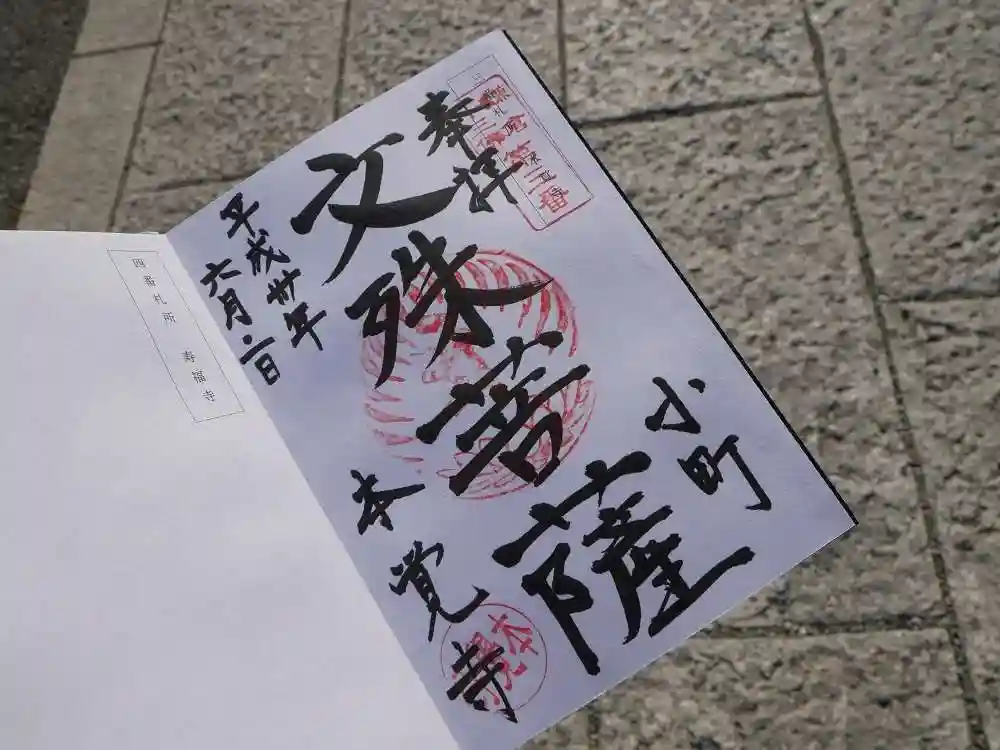 第三番
奉拝
小町
文殊菩薩
本覚寺
平成卅年
六月二日
四番札所 寿福寺